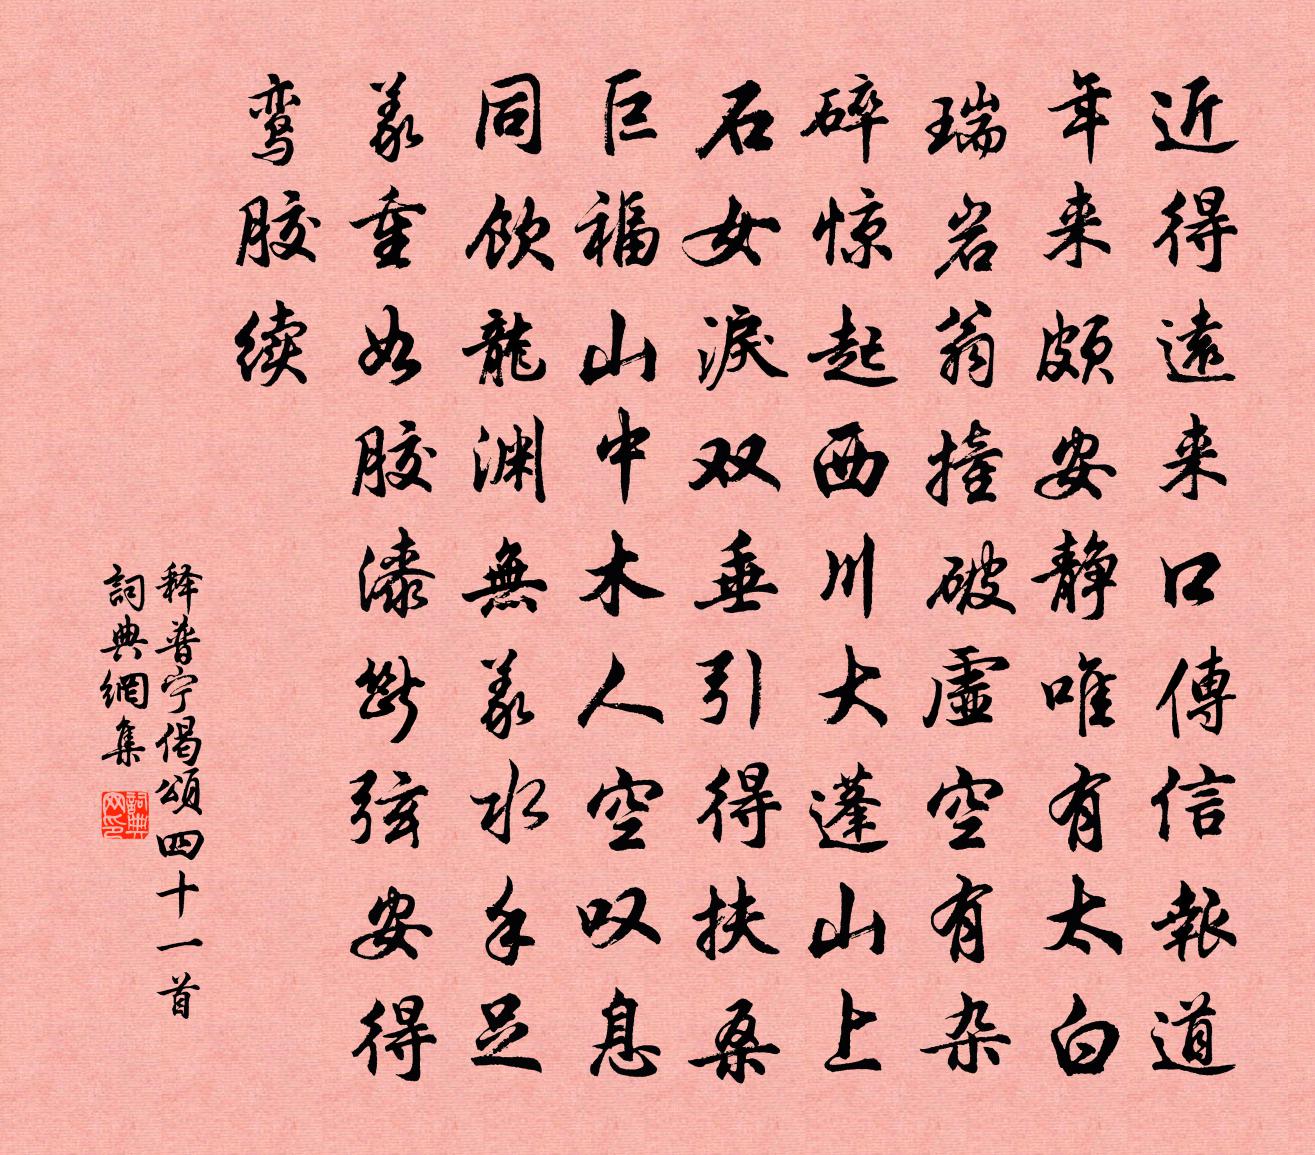 近得遠来口傳信報道
年来頗安静唯有太白
瑞岩翁撞破虚空有杂
碎惊起西川大蓬山上
石女淚双垂引得扶桑
巨福山中木人空叹息
同飲龍渊無義水手足
義重如胶漆断弦安得
鸾胶续
释普宁偈頌四十一首
詞典網集
詞典网印